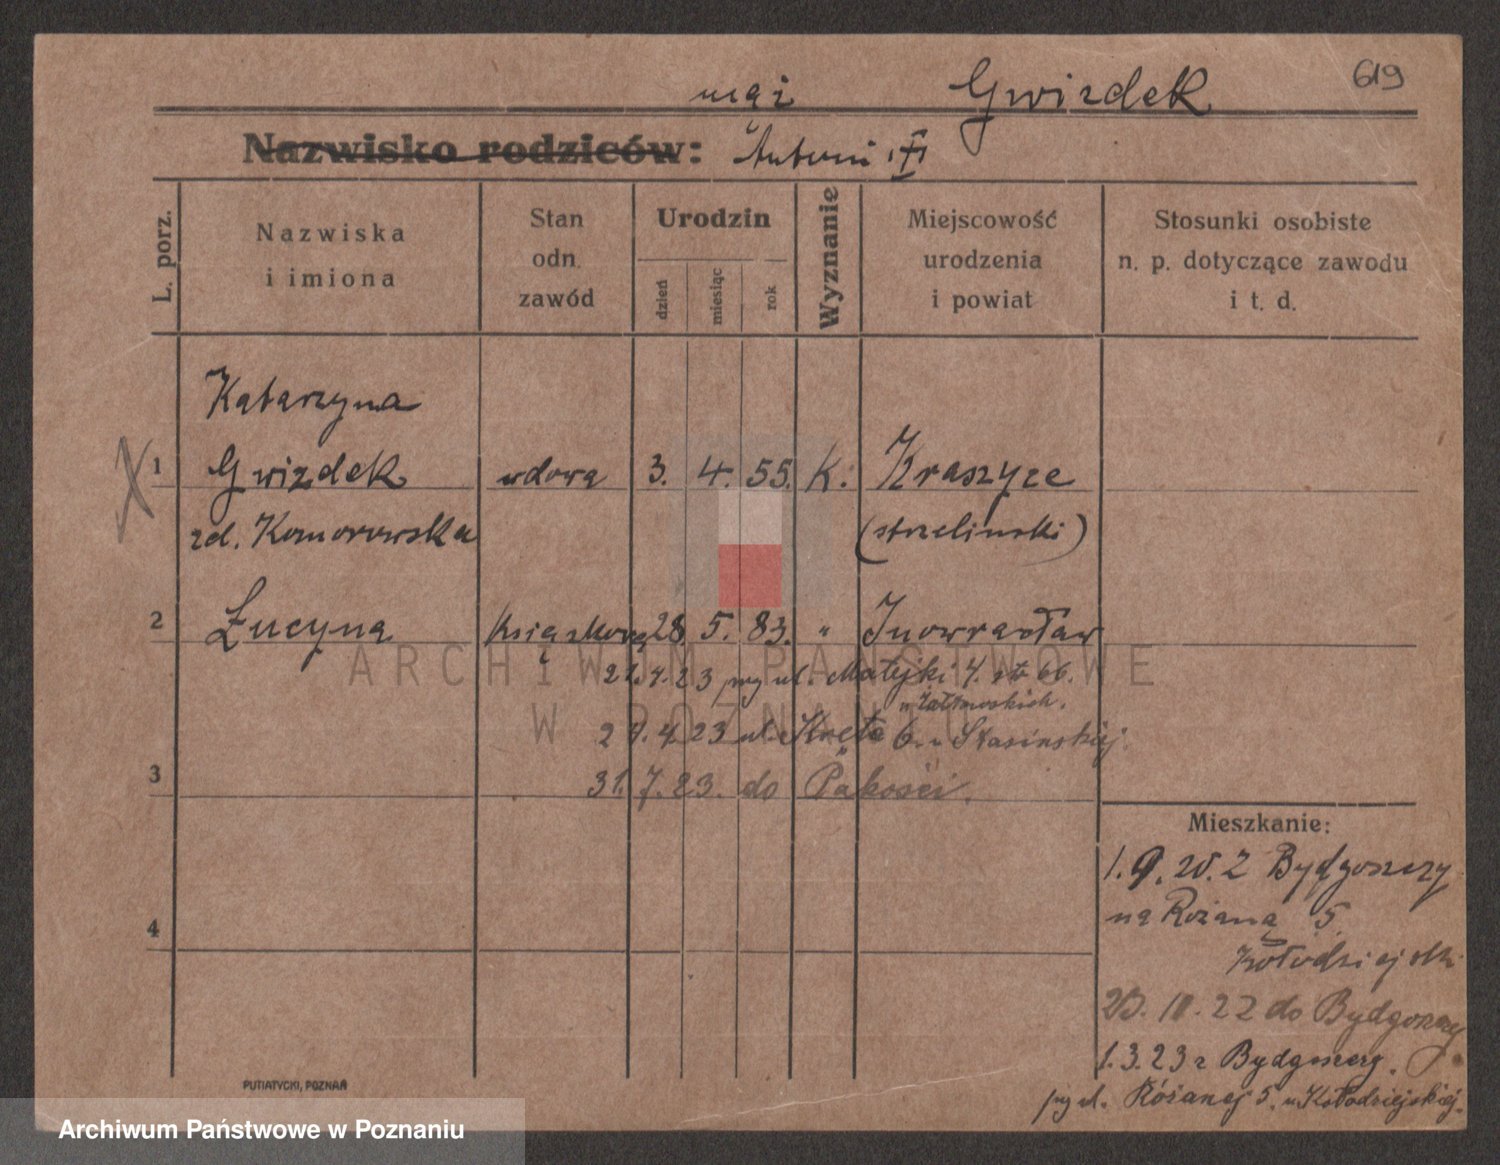 619
mąż Gwizdek
Nazwisko rodziców: Antoni
L. porz.
Nazwiska
i imiona
Stan
odn.
zawód
Urodzin
dzień
miesiąc
rok
Wyznanie
Miejscowość
urodzenia
i powiat
Stosunki osobiste
n. p. dotyczące zawodu
i t. d.
Katarzyna
1 Gwizdek wdowa 3. 4. 55. K. Kraszyce
zd. Komorowska (strzelinski)
2 Łucyna 28. 5. 83. " Inowrocław
ARCHIWUM PAŃSTWOWE
W POZNANIU
4.23 ul. Matejki 4.
4.23 ul. Kręta 6. u Stasinskiej
3 31.7.23. do Pakości.
4
Mieszkanie:
1.9.20. z Bydgoszczy
na Różaną 5
Kołodziejski
10.22 do Bydgoszczy
1.3.23 z Bydgoszczy.
ul. Różanej 5. u Kołodziejskiej.
PUTIATYCKI, POZNAŃ
Archiwum Państwowe w Poznaniu